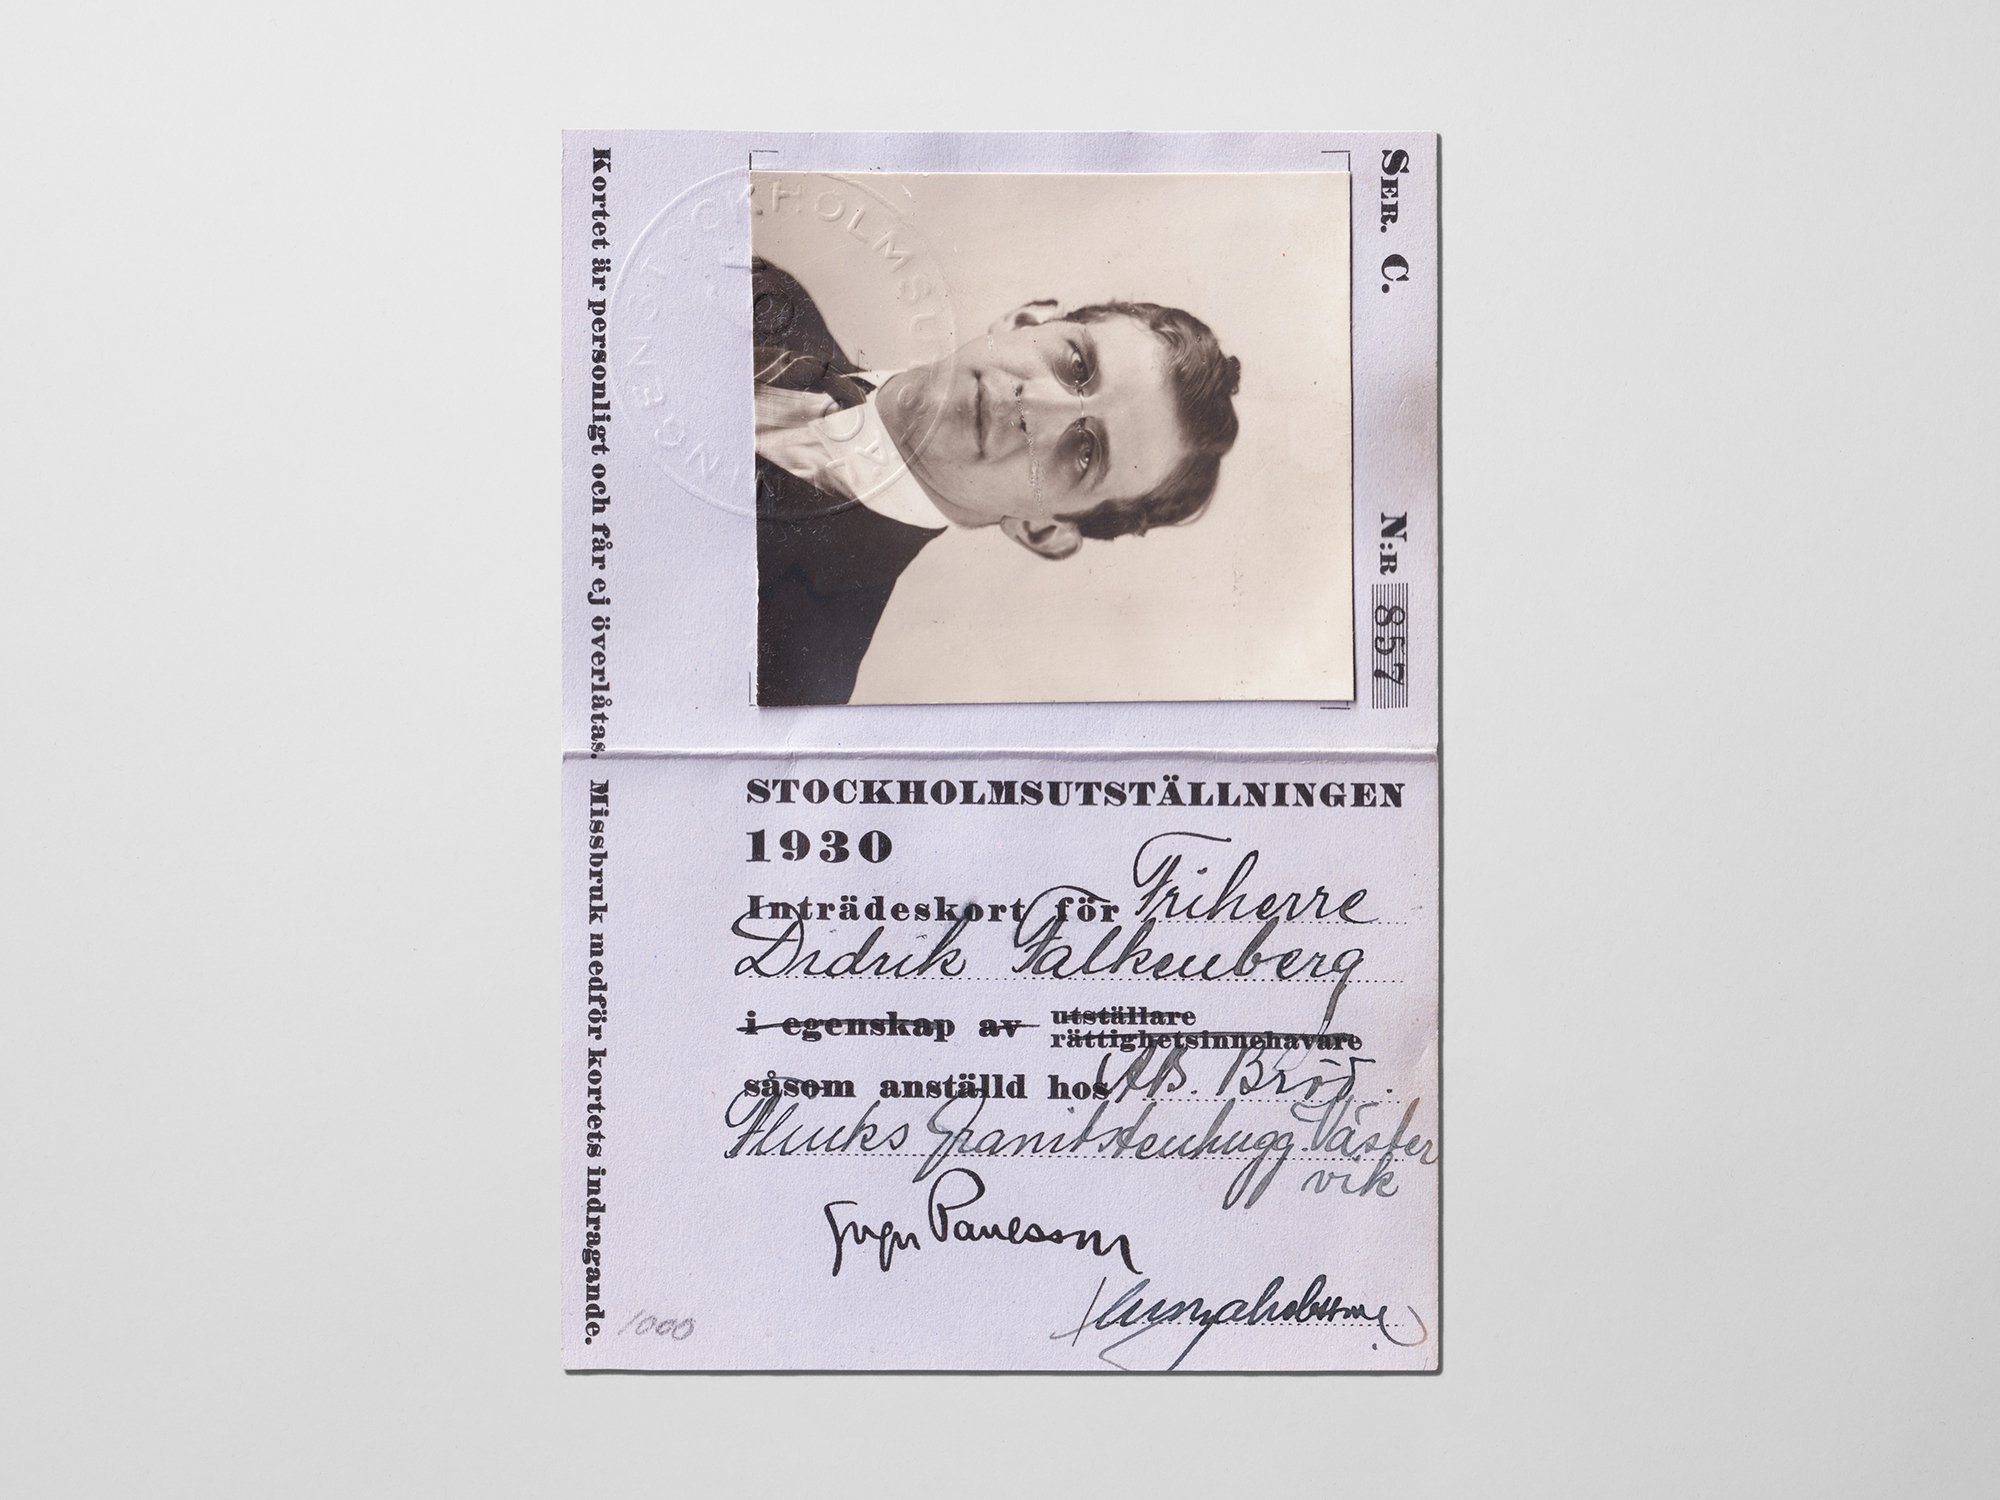 SER. C. N:R 857
STOCKHOLMSUTSTÄLLNINGEN
Kortet är personligt och får ej överlåtas. Missbruk medför kortets indragande.
STOCKHOLMSUTSTÄLLNINGEN
1930
Inträdeskort för Friherre
Didrik Falkenberg
i egenskap av utställare
rättighetsinnehavare
såsom anställd hos AB. Bröd.
Flinks Granitstenhugg. Väster
vik
Paulsson
1000